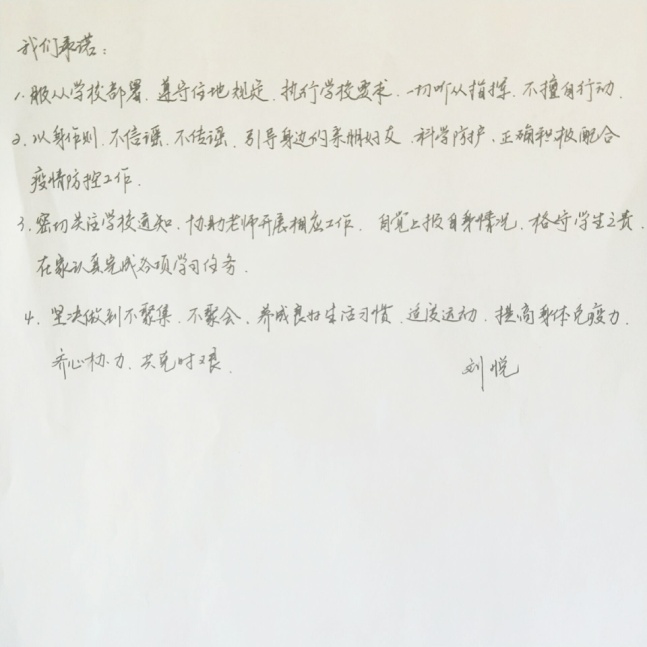 我们承诺：
1. 服从学校部署、遵守住地规定、执行学校要求、一切听从指挥、不擅自行动.
2. 以身作则、不信谣、不传谣、引导身边的亲朋好友、科学防护、正确积极配合
疫情防控工作.
3. 密切关注学校通知、协助老师开展相应工作. 自觉上报自身情况、格守学生之责.
在家认真完成各项学习任务.
4. 坚决做到不聚集、不聚会、养成良好生活习惯、适度运动、提高身体免疫力.
齐心协力、共克时艰.
刘悦